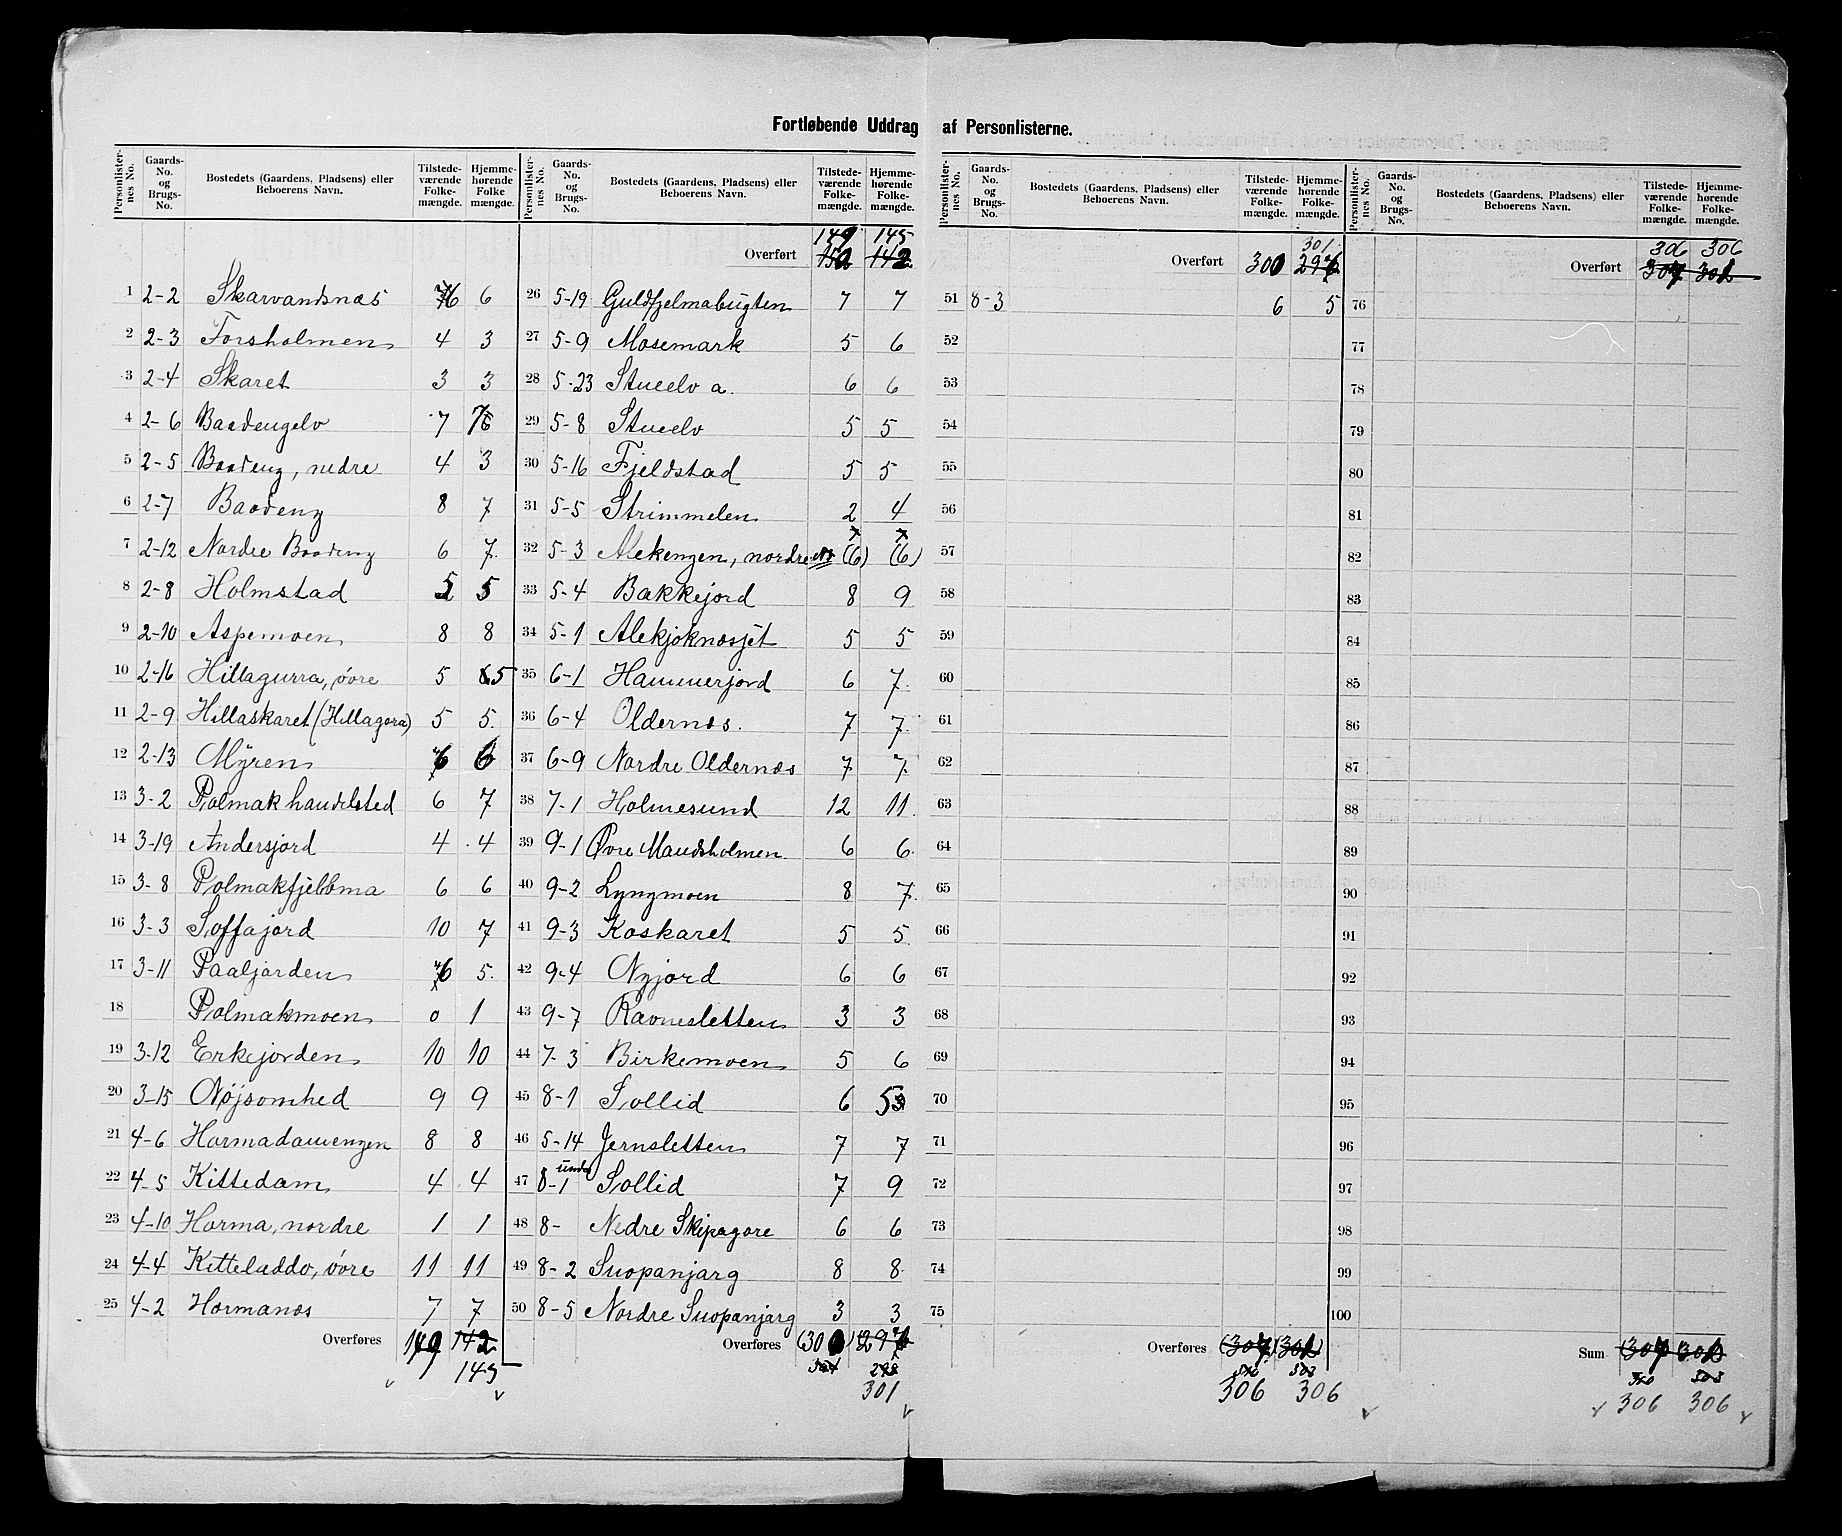 Fortløbende Uddrag af Personlisterne.
Personlister-nes No. Gaards-No. og Brugs-No. Bostedets (Gaardens, Pladsens) eller Beboerens Navn. Tilstede-værende Folke-mængde. Hjemme-hørende Folke mængde.
1 2-2 Skarvandsnæs 6 6
2 2-3 Forsholmen 4 3
3 2-4 Skaret 3 3
4 2-6 Baadengelv 7 7
5 2-5 Baadeng, nedre 4 3
6 2-7 Baadeng 8 7
7 2-12 Nordre Baadeng 6 7
8 2-8 Holmstad 5 5
9 2-10 Aspemoen 8 8
10 2-16 Hillagurra, øvre 5 5
11 2-9 Hillaskaret (Hillagora) 5 5
12 2-13 Myren 6 6
13 3-2 Polmak handelsted 6 7
14 3-19 Andersjord 4 4
15 3-8 Polmakfjeldma 6 6
16 3-3 Soffajord 10 7
17 3-11 Paaljorden 6 5
18 Polmakmoen 0 1
19 3-12 Erkejorden 10 10
20 3-15 Nøjsomhed 9 9
21 4-6 Harmadamengen 8 8
22 4-5 Kittedam 4 4
23 4-10 Horma, nordre 1 1
24 4-4 Kitteladdo, øvre 11 11
25 4-2 Hormanæs 7 7
Overføres 149 142
145
Personlister-nes No. Gaards-No. og Brugs-No. Bostedets (Gaardens, Pladsens) eller Beboerens Navn. Tilstede-værende Folke-mængde. Hjemme-hørende Folke-mængde.
149 145
Overført 150 142
26 5-19 Guldfjelmabugten 7 7
27 5-9 Mosemark 5 6
28 5-23 Stueelv a. 6 6
29 5-8 Stueelv 5 5
30 5-16 Fjeldstad 5 5
31 5-5 Strimmelen 2 4
32 5-3 Alekengen, nordre (6) (6)
33 5-4 Bakkejord 8 9
34 5-1 Alekjoknæsjet 5 5
35 6-1 Hammerjord 6 7
36 6-4 Oldernæs. 7 7
37 6-9 Nordre Oldernæs 7 7
38 7-1 Holmesund 12 11
39 9-1 Øvre Mandsholmen 6 6
40 9-2 Lyngmoen 8 7
41 9-3 Koskaret 5 5
42 9-4 Nyjord 6 6
43 9-7 Ravnesletten 3 3
44 7-3 Birkemoen 5 6
45 8-1 Sollid 6 5
46 5-14 Jernsletten 7 7
47 8-1 under Sollid 7 9
48 8- Nedre Skipagore 6 6
49 8-2 Suopanjarg 8 8
50 8-5 Nordre Suopanjarg 3 3
Overføres (300) 297
301 298
301
Personlister-nes No. Gaards-No. og Brugs-No. Bostedets (Gaardens, Pladsens) eller Beboerens Navn. Tilstede-værende Folke-mængde. Hjemme-hørende Folke-mængde.
301
Overført 300 297
51 8-3 6 5
52
53
54
55
56
57
58
59
60
61
62
63
64
65
66
67
68
69
70
71
72
73
74
75
Overføres (307) (302)
306 303
306 306
Personlister-nes No. Gaards-No. og Brugs-No. Bostedets (Gaardens, Pladsens) eller Beboerens Navn. Tilstede-værende Folke-mængde. Hjemme-hørende Folke-mængde.
306 306
Overført 307 302
76
77
78
79
80
81
82
83
84
85
86
87
88
89
90
91
92
93
94
95
96
97
98
99
100
Sum (307) (302)
303
306 306